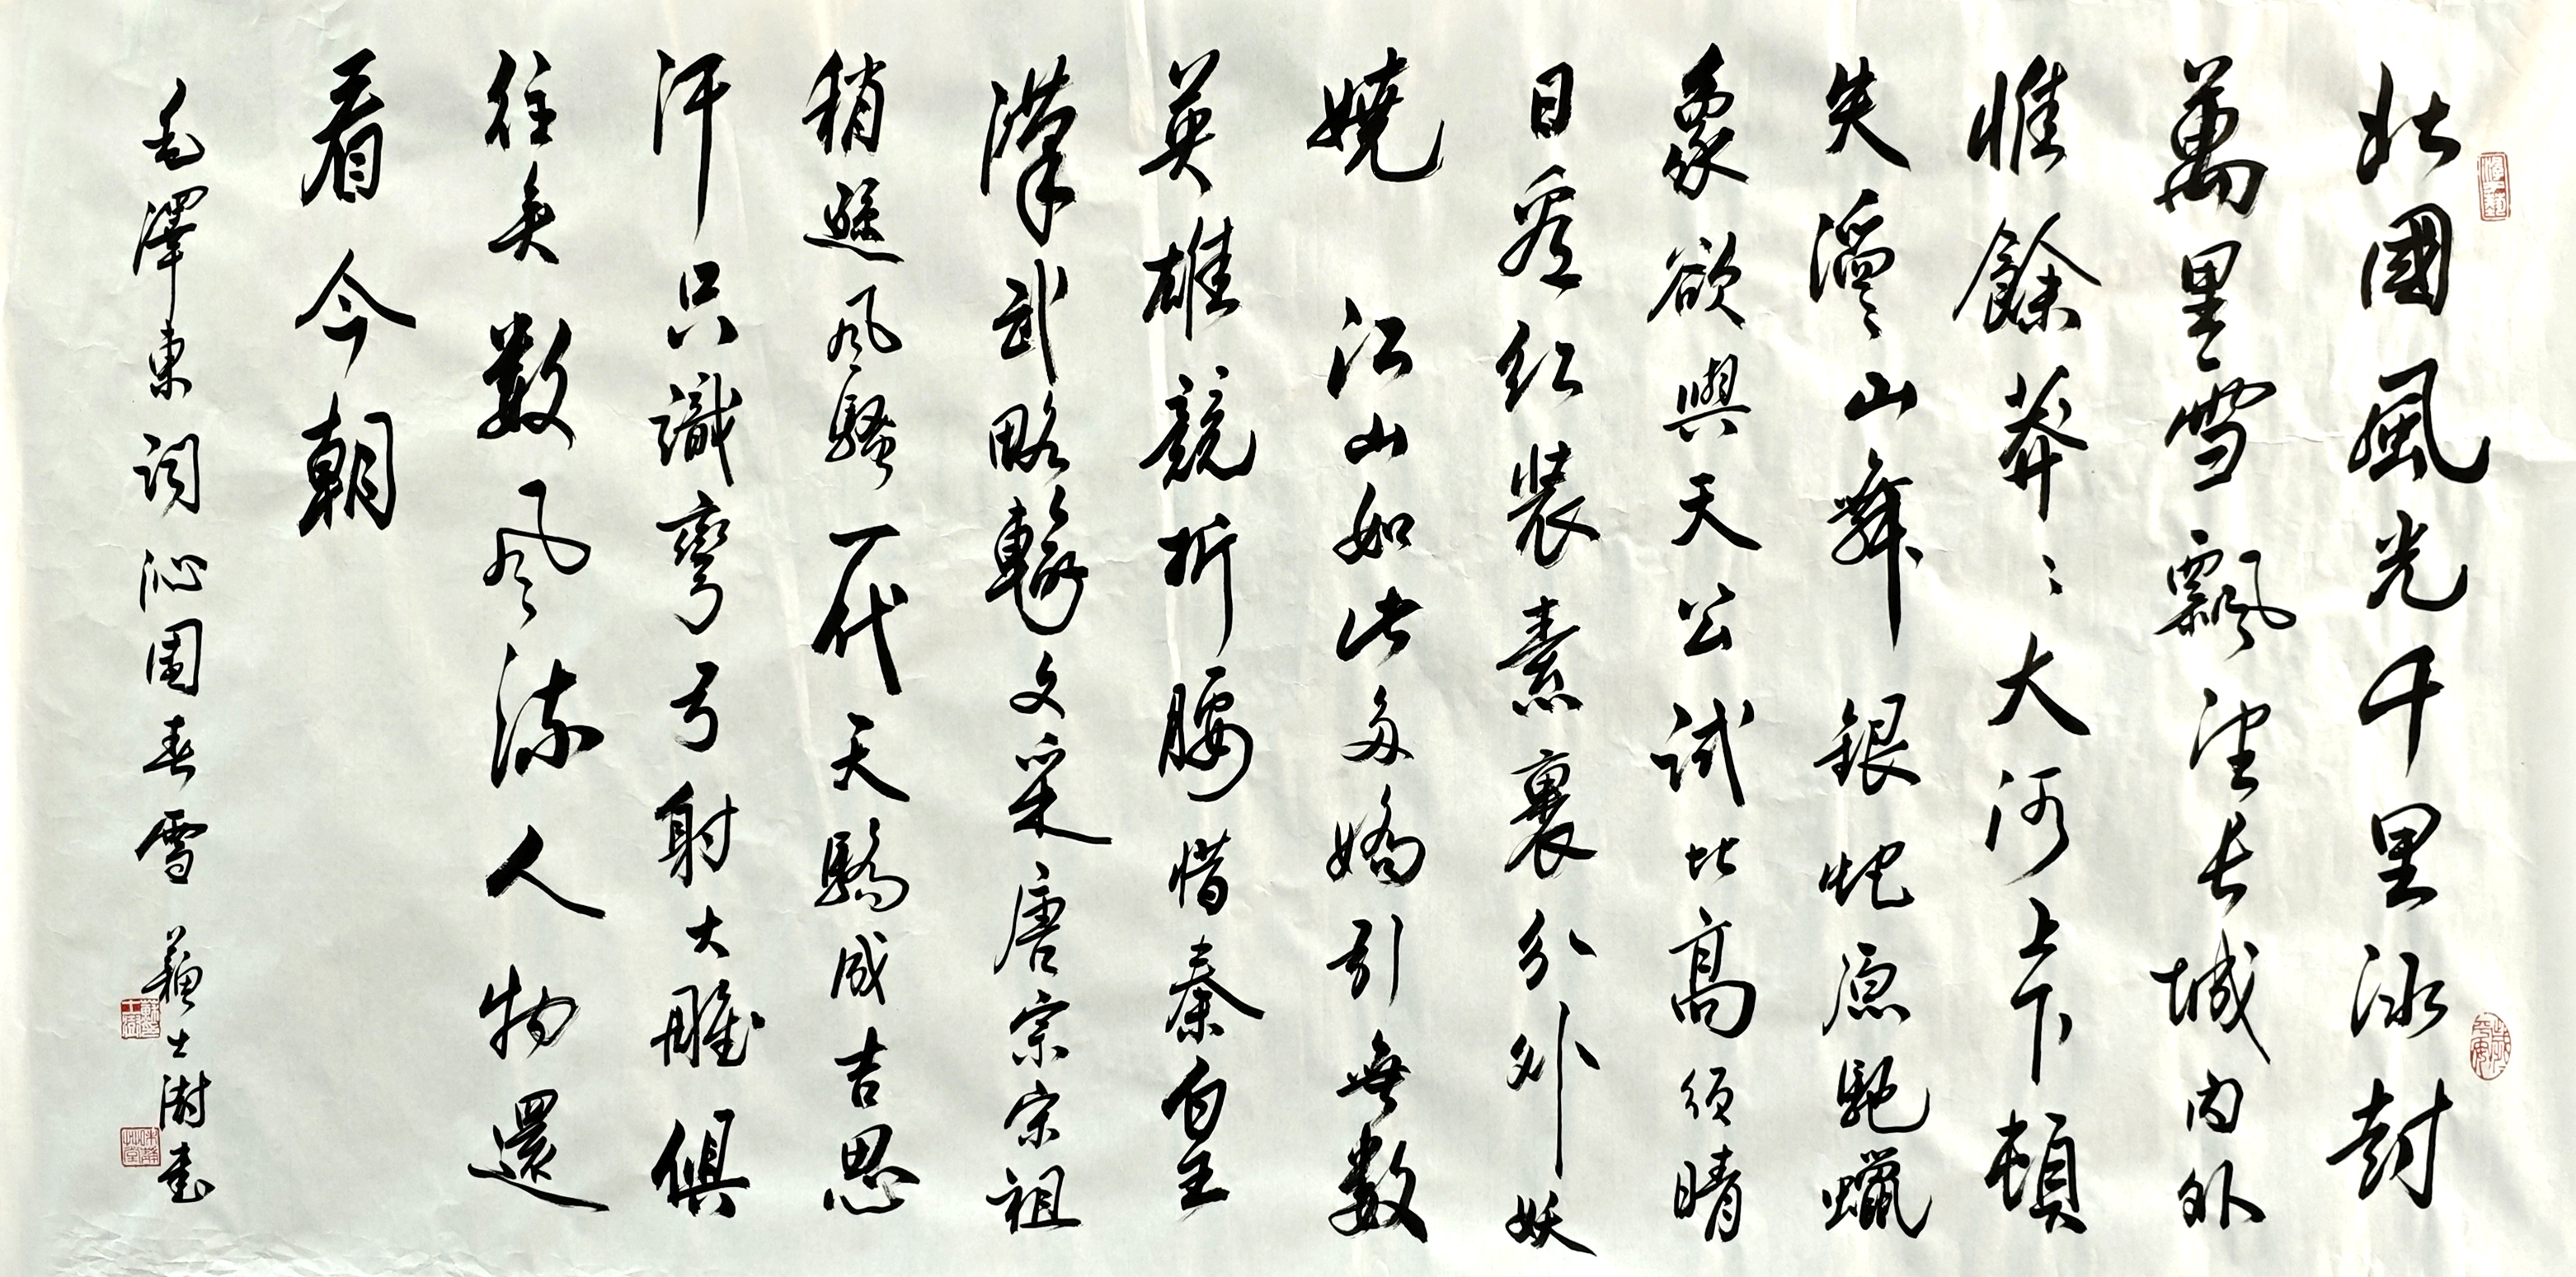 北國風光千里冰封
萬里雪飄望長城內外
惟餘莽々大河上下頓
失滔々山舞銀蛇原馳蠟
象欲與天公試比高須晴
日看紅裝素裹分外妖
嬈江山如此多嬌引無數
英雄競折腰惜秦皇
漢武略輸文采唐宗宗祖
稍遜風騷一代天驕成吉思
汗只識彎弓射大雕俱
往矣數風流人物還
看今朝
毛澤東詞沁園春雪蘇士澍書